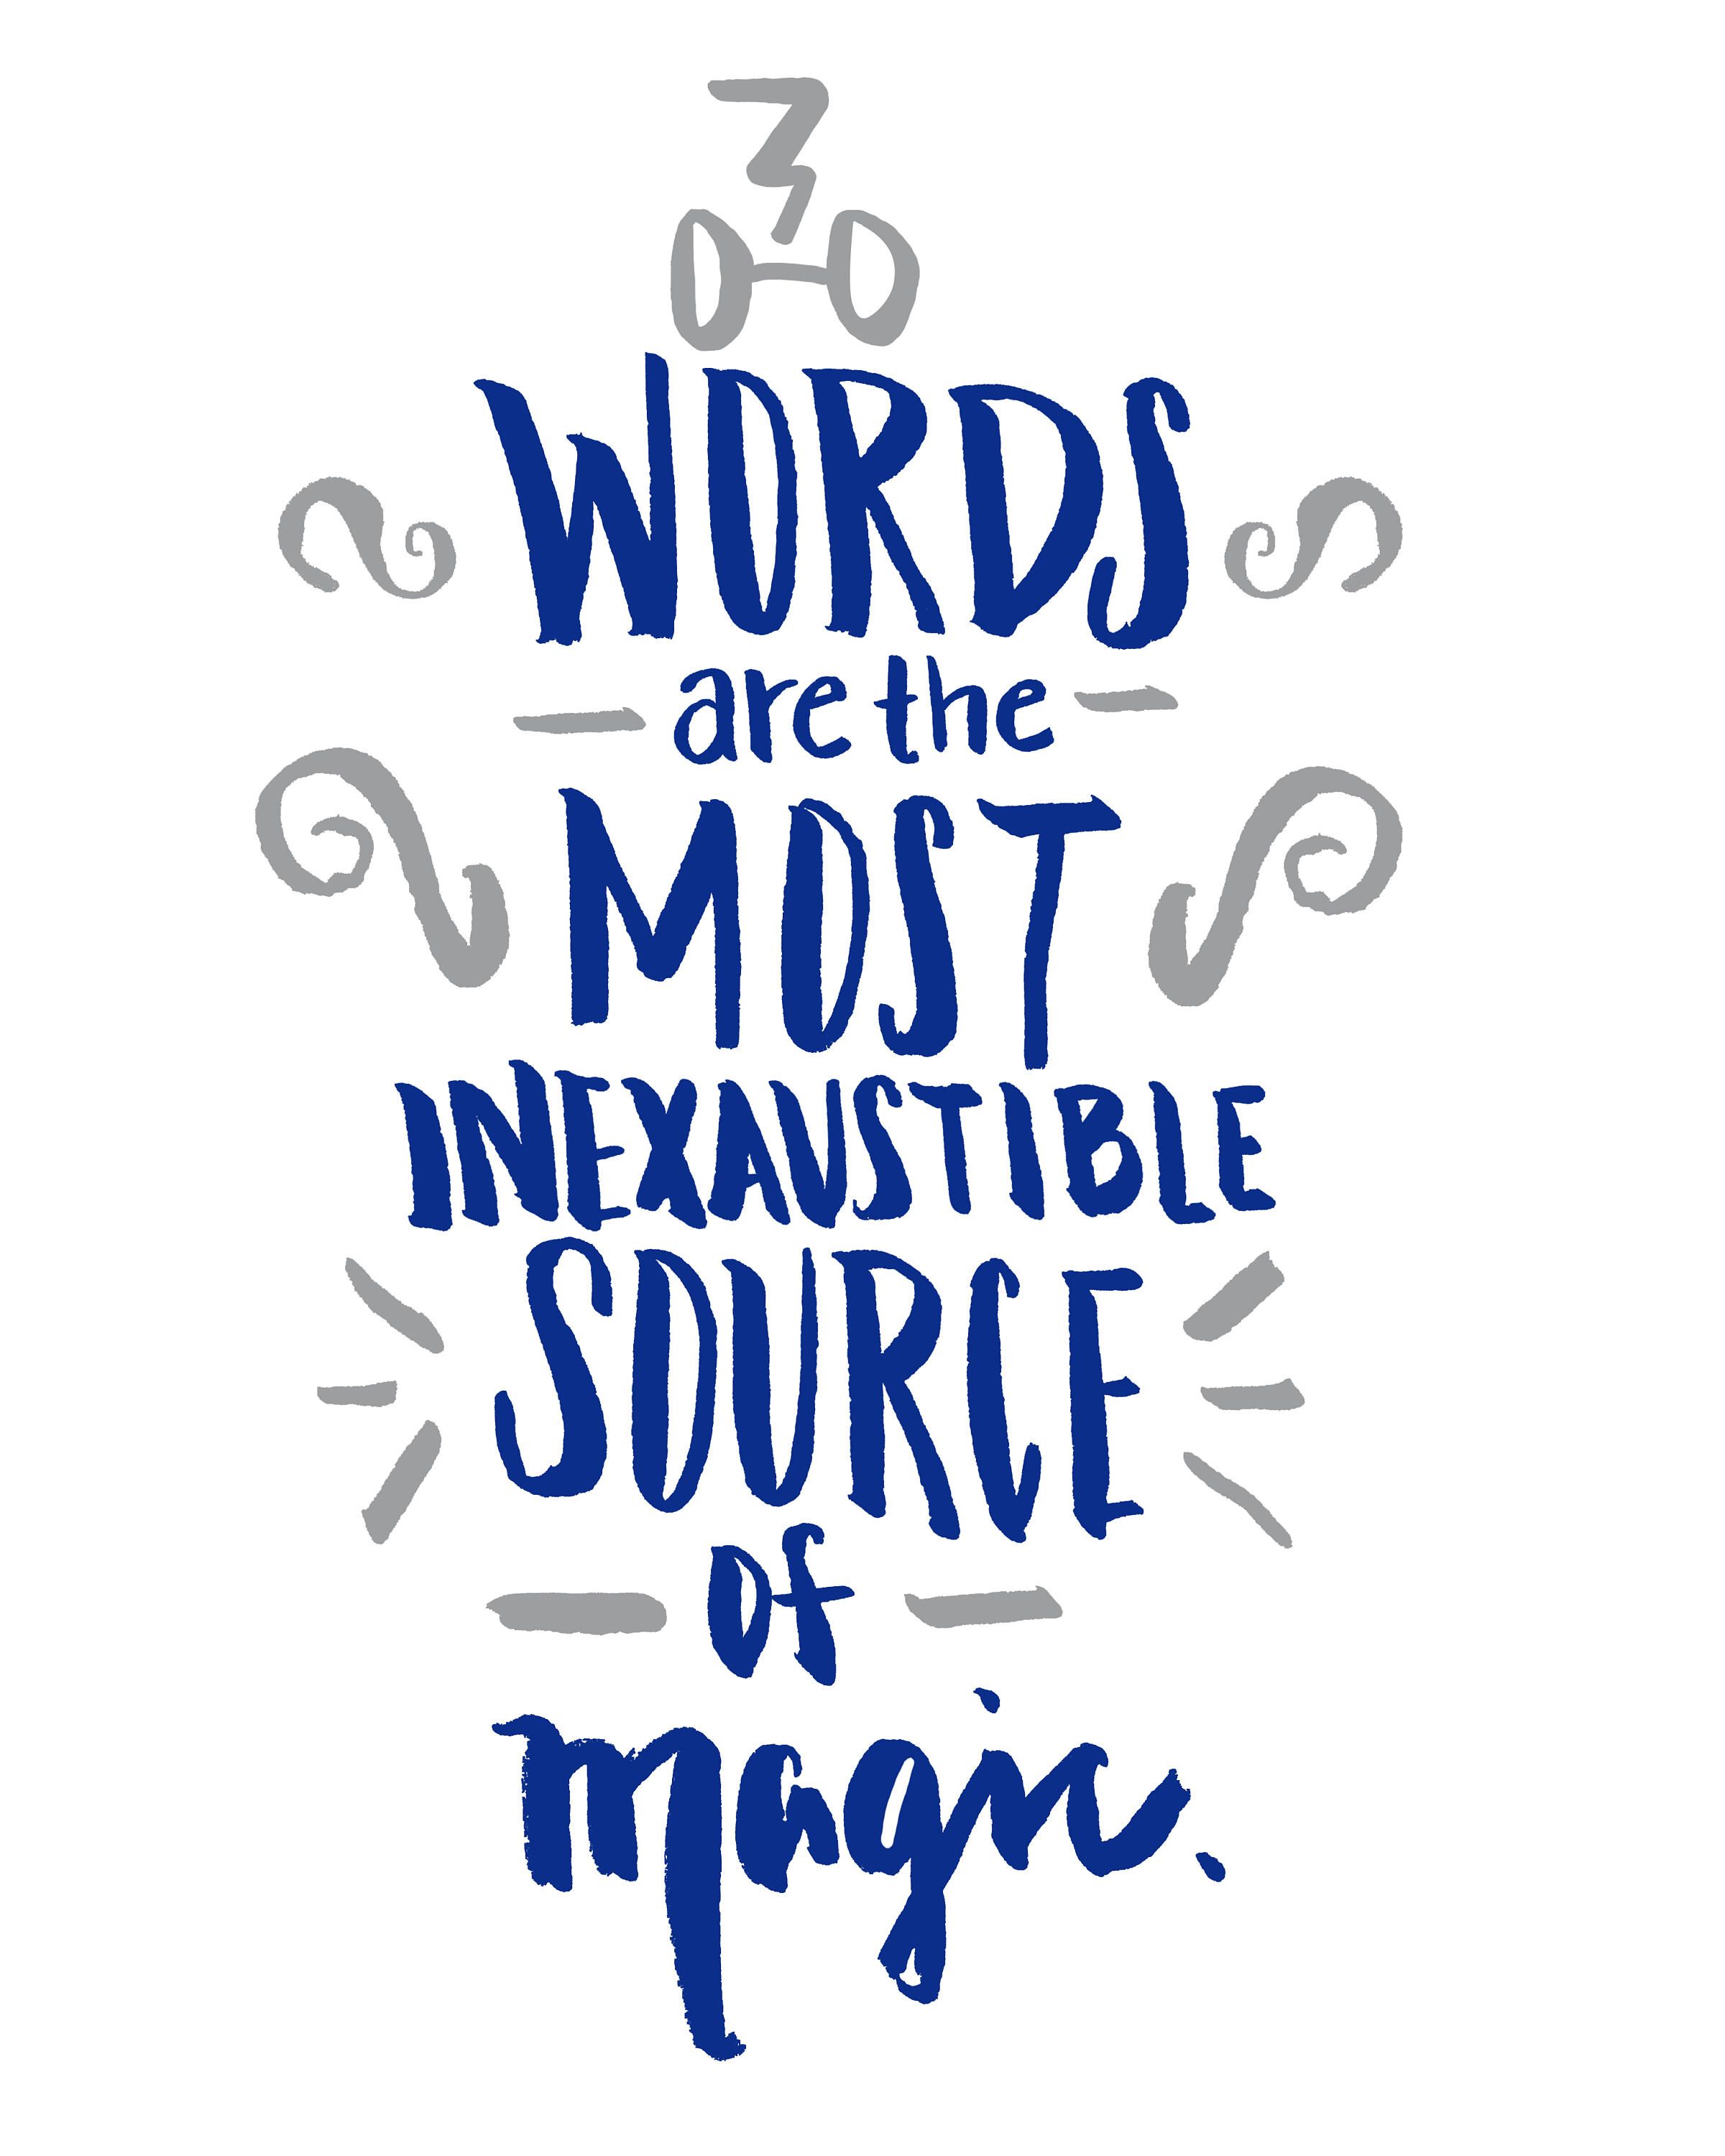 WORDS
are the
MOST
INEXAUSTIBLE
SOURCE
of
magic.